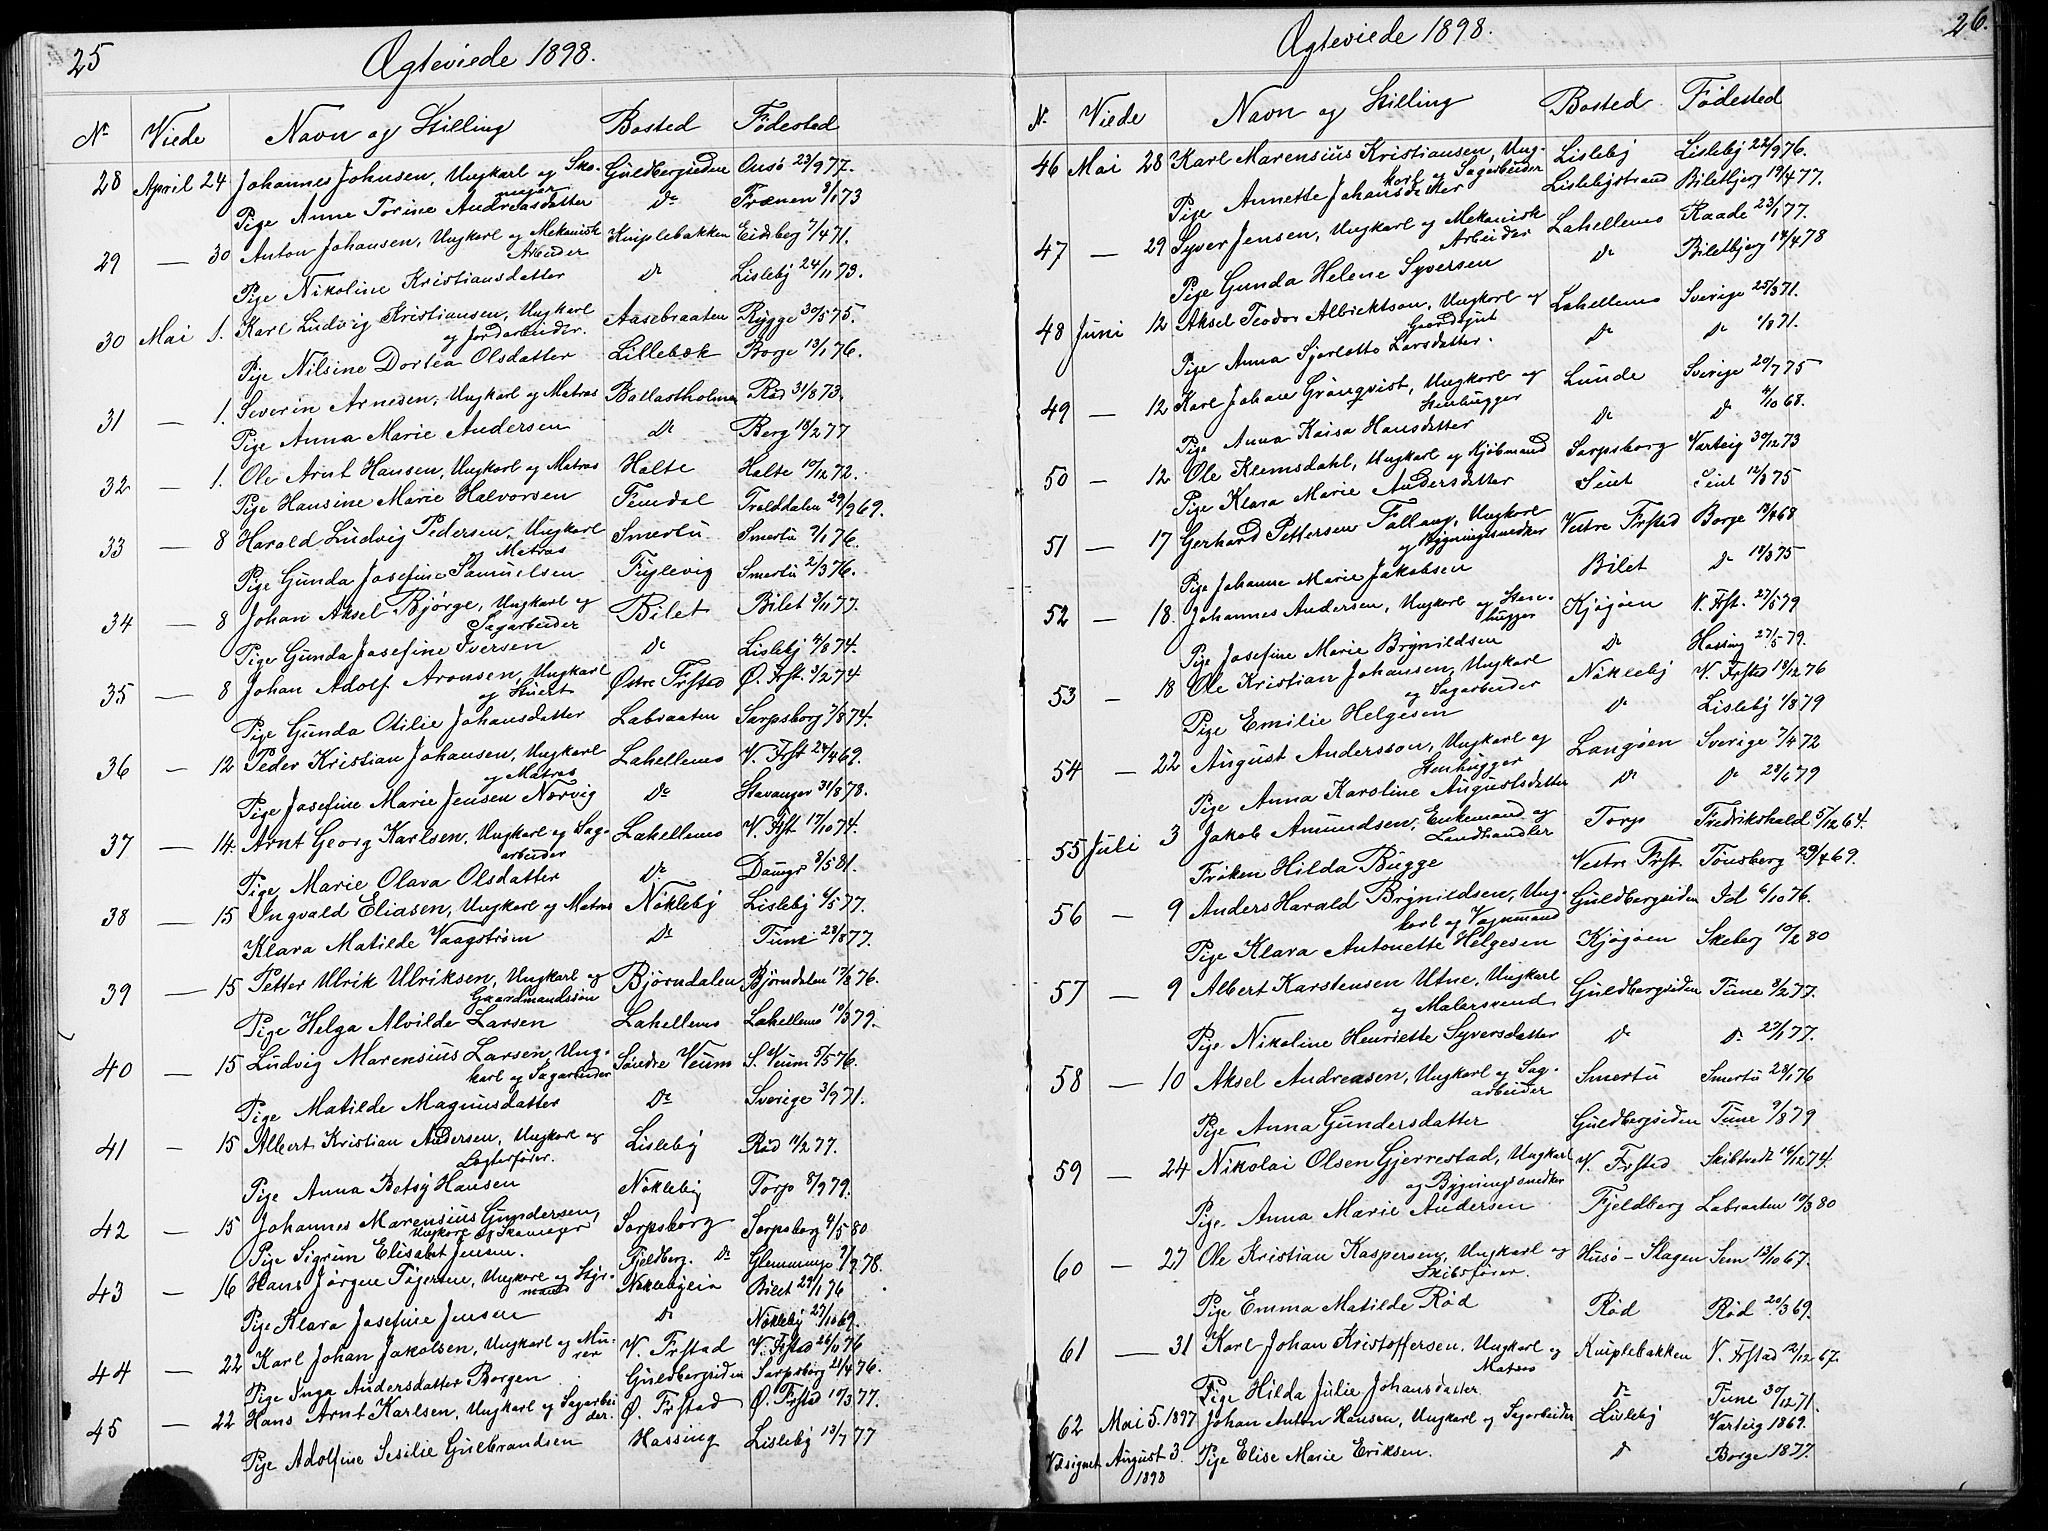 25
Ægteviede 1898.
Nr. Viede Navn og Stilling Bosted Fødested
28 April 24 Johannes Johnsen, Ungkarl og Sko- Guldbergsiden Onsö 23/9 77.
mager
Pige Anne Torine Andreasdatter Do Trænen 9/1 73
29 — 30 Anton Johansen, Ungkarl og Mekanisk Kniplebakken Eidsberg 7/4 71.
Arbeider
Pige Nikoline Kristiansdatter Do Lisleby 24/11 73.
30 Mai 1. Karl Ludvig Kristiansen, Ungkarl Aasebraaten Rygge 30/5 75.
og Jordarbeider.
Pige Nilsine Dortea Olsdatter Lillebæk Borge 13/1 76.
31 — 1. Severin Arnesen, Ungkarl og Matros Ballastholmen Rød 31/8 73.
Pige Anna Marie Andersen Do Berg 18/2 77
32 — 1. Ole Arnt Hansen, Ungkarl og Matros Holte Holte 10/12 72.
Pige Hansine Marie Halvorsen Femdal Trolddalen 29/9 69.
33 — 8 Harald Ludvig Pedersen, Ungkarl Smertu Smertu 9/1 76.
og Matros
Pige Gunda Josefine Samuelsen Fuglevig Smertu 2/3 76.
34 — 8 Johan Aksel Bjørge, Ungkarl og Bilet Bilet 3/11 77.
Sagarbeider
Pige Gunda Josefine Iversen Do Lisleby 4/8 74.
35 — 8 Johan Adolf Aronsen, Ungkarl Østre Frstad Ø. Frst. 3/2 74
og Stuert
Pige Gunda Otilie Johansdatter Labraaten Sarpsborg 7/8 74.
36 — 12 Peder Kristian Johansen, Ungkarl Lahellemo V. Frst 24/4 69.
og Matros
Pige Josefine Marie Jensen Nørvig Do Stavanger 31/8 78.
37 — 14. Arnt Georg Karlsen, Ungkarl og Sag- Lahellemo V. Frst 17/10 74.
arbeider
Pige Marie Olava Olsdatter Do 8/5 81.
38 — 15 Ingvald Eliasen, Ungkarl og Matros Nökleby Lisleby 6/5 77.
Klara Matilde Vaagstrøm Do Tune 28/8 77.
39 — 15 Petter Ulrik Ulriksen, Ungkarl og Bjørndalen Bjørndalen 17/8 76.
Gaardmandssøn
Pige Helga Alvilde Larsen Lahellemo Lahellemo 10/3 79.
40 — 15 Ludvig Marensius Larsen, Ung- Søndre Veum S. Veum 5/5 76.
karl og Sagarbeider
Pige Matilde Magnusdatter Do Sverige 3/9 71.
41 — 15 Albert Kristian Andersen, Ungkarl og Lisleby Rød 11/2 77.
Lægterfører.
Pige Anna Betsy Hansen Nökleby Torp 8/9 79.
42 — 15 Johannes Marensius Gundersen, Sarpsborg Sarpsborg 4/5 80
Ungkarl og Skomager
Pige Sigrun Elisabet Jensen. Fjeldberg. Do Glemminge 2/9 78.
43 — 16 Hans Jörgen Tögersen, Ungkarl og Styr- Nøklebyeie Bilet 29/1 76
mand
Pige Klara Josefine Jensen Do Nøkleby 27/10 69.
44 — 22 Karl Johan Jakobsen, Ungkarl og Mu- V. Frstad V. Frstad 26/11 76
rer
Pige Inga Andersdatter Borgen Guldbergsiden Sarpsborg 21/4 76.
45 — 22 Hans Arnt Karlsen, Ungkarl og Sagarbei- Ø. Frstad Ø. Frstad 17/3 77.
der.
Pige Adolfine Sesilie Gulbrandsen Hassing Lisleby 13/7 77
26.
Ægteviede 1898.
Nr. Viede Navn og Stilling Bosted Fødested
46 Mai 28 Karl Marensius Kristiansen, Ung- Lisleby Lisleby 22/9 76.
karl og Sagarbeider
Pige Annette Johansdatter Lislebystrand Biletbjerg 19/4 77.
47 — 29 Syver Jensen, Ungkarl og Mekanisk Lahellemo Raade 23/1 77.
Arbeider
Pige Gunda Helene Syversen Do Biletbjerg 14/4 78
48 Juni 12 Aksel Teodor Albrektson, Ungkarl og Lahellemo Sverige 25/3 71.
Gaardsgut
Pige Anna Sjarlotte Larsdatter. Do Do 1/8 71.
49 — 12 Karl Johan Grönqvist, Ungkarl og Lunde Sverige 20/7 75
Stenhugger
Pige Anna Kaisa Hansdatter Do Do 4/10 68.
50 — 12 Ole Klemsdahl, Ungkarl og Kjøbmand Sarpsborg Varteig 30/12 73
Pige Klara Marie Andersdatter 12/3 75
51 — 17 Gerhard Pettersen Fallang, Ungkarl Vestre Frstad Borge 19/4 68
og Bygningssnedker
Pige Johanne Marie Jakobsen Bilet Do 18/3 75
52 — 18. Johannes Andersen, Ungkarl og Sten- Kjøgøen V. Frst. 27/5 79
hugger
Pige Josefine Marie Brynildsen Do Hassing 27/5 79.
53 — 18 Ole Kristian Johansen, Ungkarl Nökleby V. Frstad 18/12 76
og Sagarbeider
Pige Emilie Helgesen Do Lisleby 1/8 79
54 — 22 August Andersson, Ungkarl og Langøen Sverige 7/4 72
Stenhugger
Pige Anna Karoline Augustsdatter Do Do 28/6 79
55 Juli 3 Jakob Amundsen, Enkemand og Torp Fredrikshald 5/12 64.
Landhandler
Frøken Hilda Bugge Vestre Frst. Tønsberg 29/4 69.
56 — 9 Anders Harald Brynildsen, Ung- Guldbergsiden Id 6/10 76.
karl og Vognmand
Pige Klara Antonette Helgesen Kjøgøen Skeberg 10/2 80
57 — 9 Albert Karstensen Utne, Ungkarl Guldbergsiden Tune 3/2 77.
og Malersvend
Pige Nikoline Henriette Syversdatter Do Do 23/1 77.
58 — 10 Aksel Andreasen, Ungkarl og Sag- Smertu Smertu 28/1 76
arbeider
Pige Anna Gundersdatter Guldbergsiden Tune 9/8 79
59 — 24 Nikolai Olsen Gjerrestad, Ungkarl V. Frstad Skibtvedt 14/12 74.
og Bygningssnedker
Pige Anna Marie Andersen Fjeldberg Labraaten 10/3 80
60 — 27 Ole Kristian Kaspersen, Ungkarl og Husø – Slagen Sem 13/10 67.
Skibsfører.
Pige Emma Matilde Rød Rød Rød 20/3 69.
61 — 31 Karl Johan Kristoffersen, Ungkarl og Kniplebakken V. Frstad 12/12 67.
Matros
Pige Hilda Julie Johansdatter Do Tune 30/12 71.
62 Mai 5. 1897 Johan Anton Hansen, Ungkarl og Sagarbeider Lisleby Varteig 1869.
Velsignet August 3. Pige Elise Marie Eriksen. Do Borge 1877.
1898